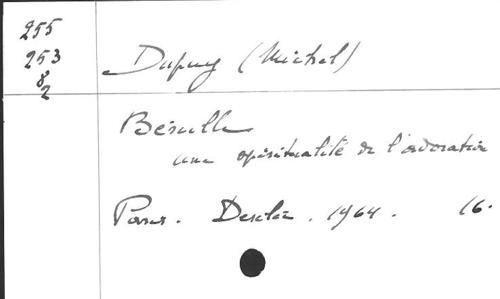 255
253
8
2
Dupuy (Michel)
Bérulle
une spiritualité de l'adoration
Paris. Desclée. 1964. 16.